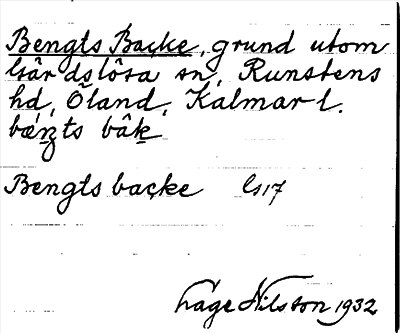 Bengts Backe, grund utom
Gärdslösa sn, Runstens
hd, Öland, Kalmar l.
bæŋts bâk
Bengts backe Gs17
Tage Nilsson 1932